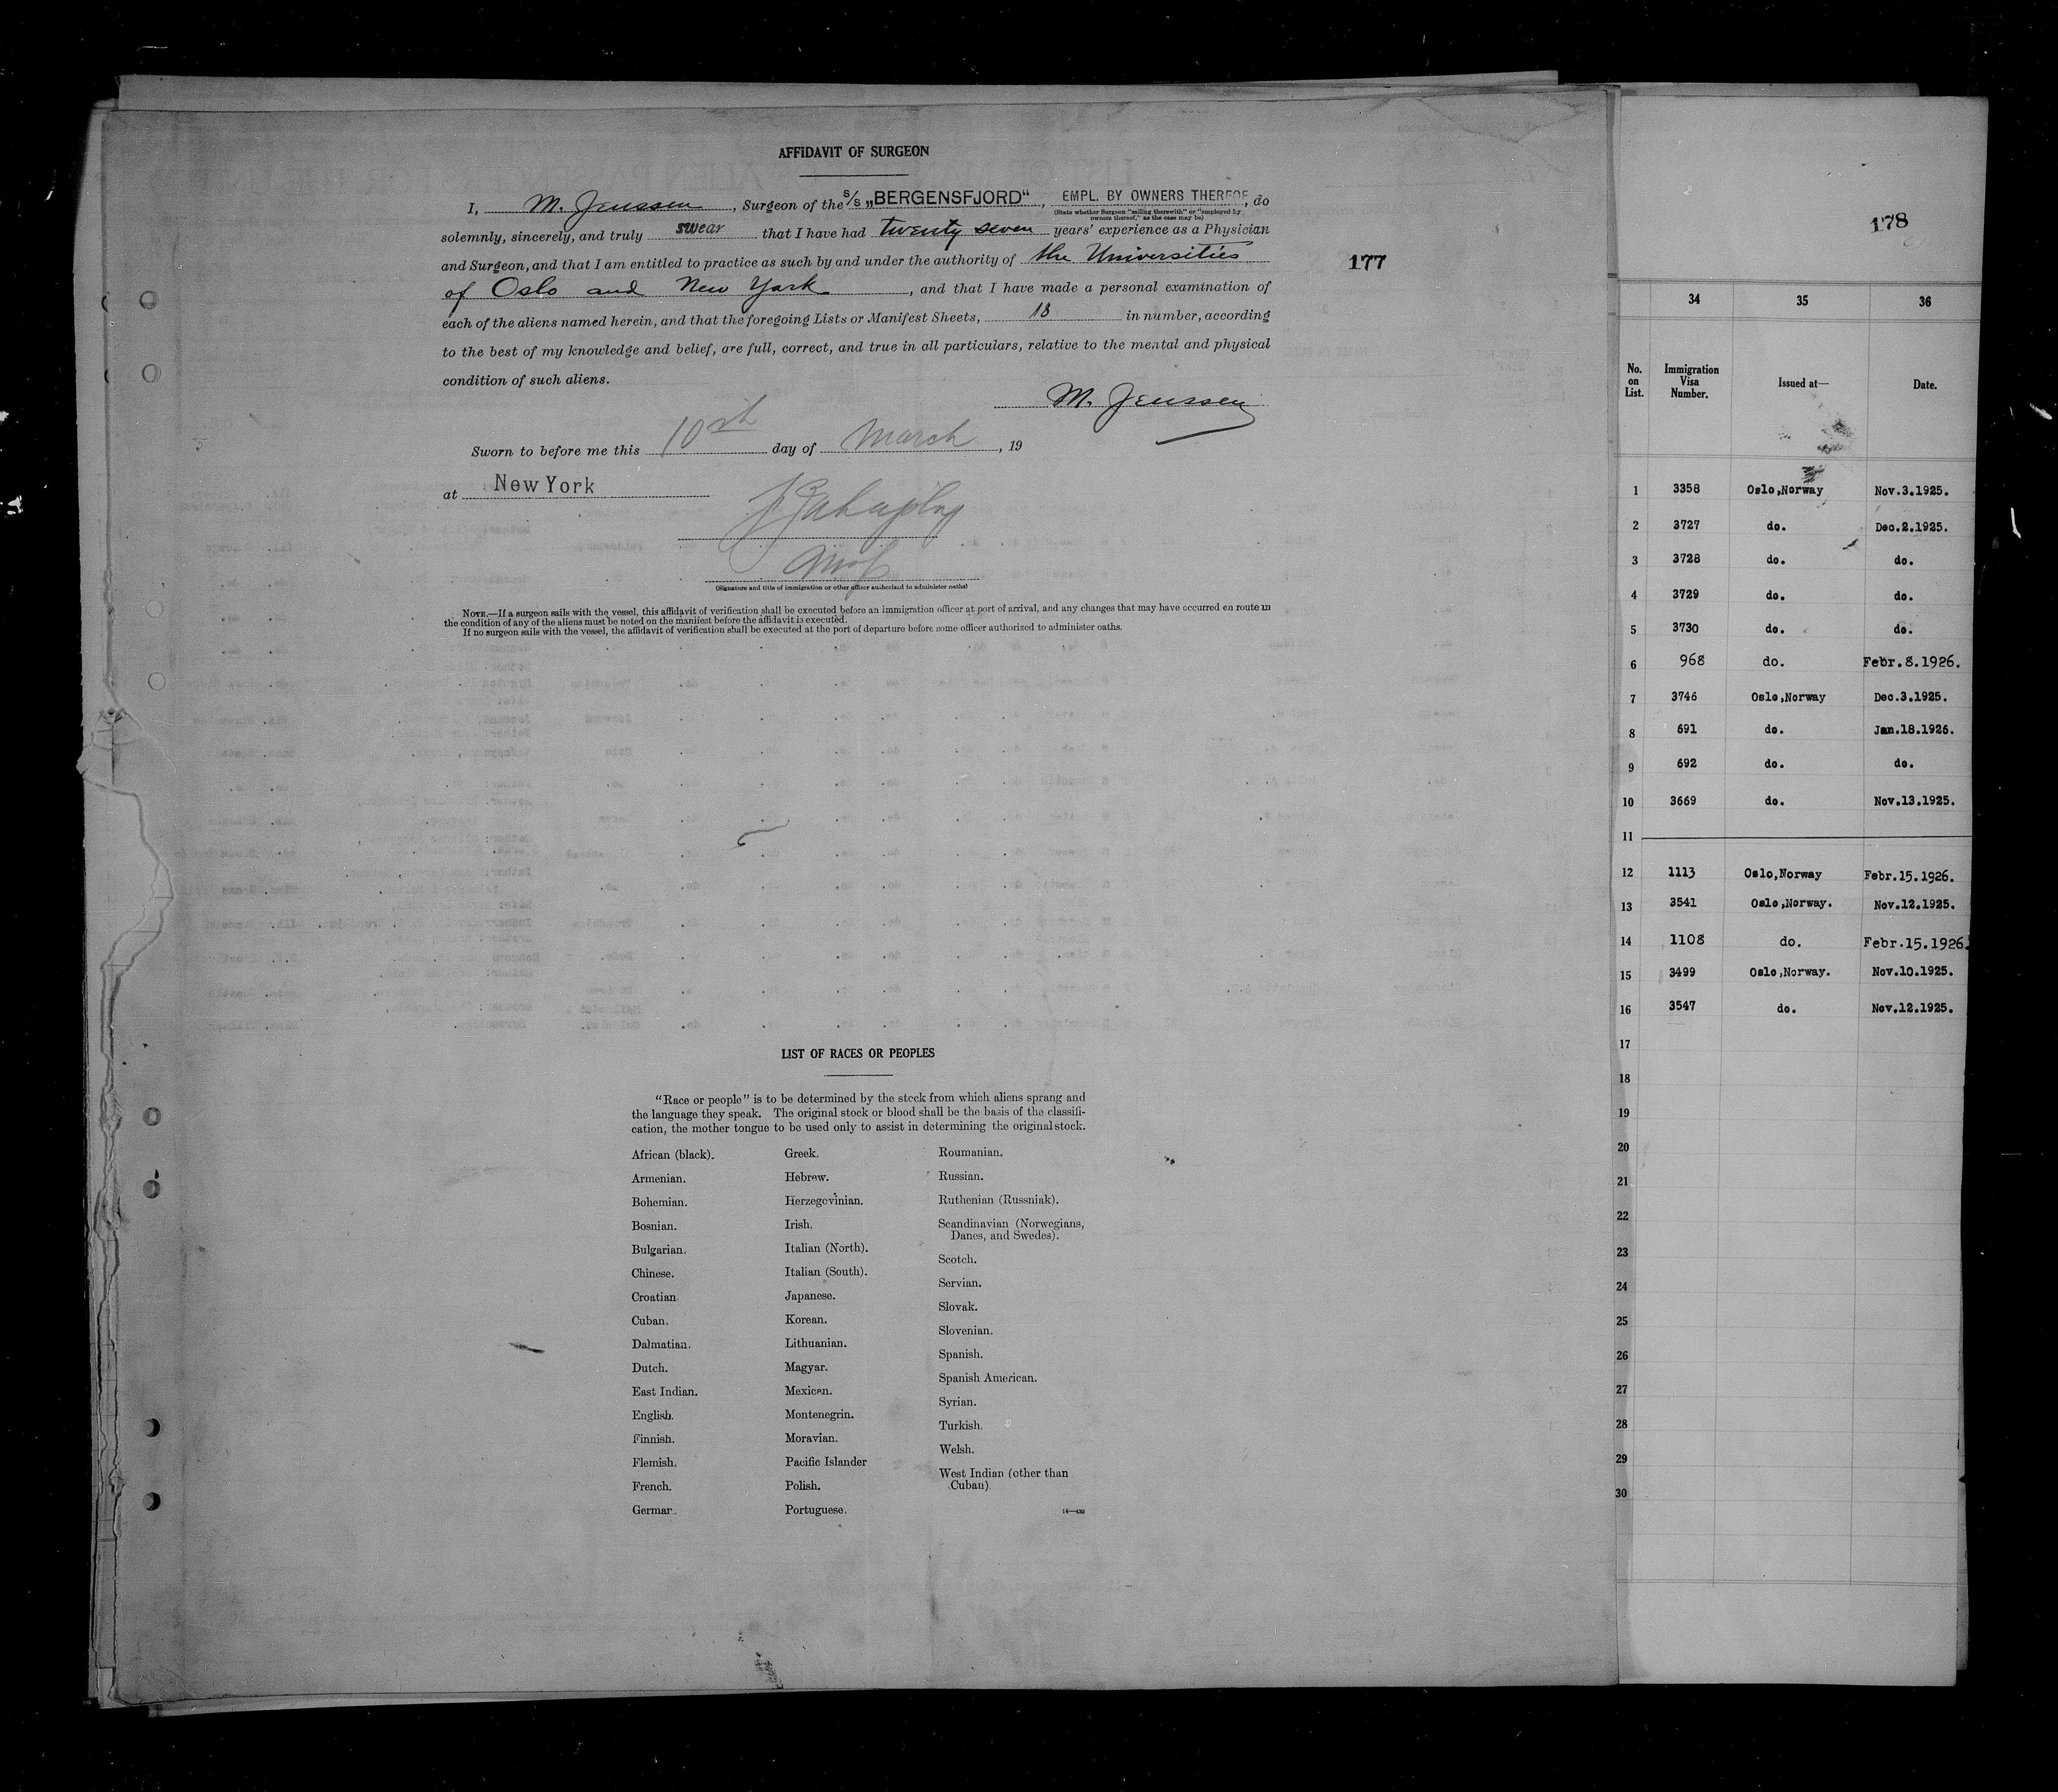 AFFIDAVIT OF SURGEON
I, M. Jenssen, Surgeon of the s/s „BERGENSFJORD“, EMPL. BY OWNERS THEREOF, do
(State whether Surgeon "sailing therewith" or "employed by
owners thereof," as the case may be)
solemnly, sincerely, and truly swear that I have had twenty seven years' experience as a Physician
and Surgeon, and that I am entitled to practice as such by and under the authority of the Universities
of Oslo and New York, and that I have made a personal examination of
each of the aliens named herein, and that the foregoing Lists or Manifest Sheets, 18 in number, according
to the best of my knowledge and belief, are full, correct, and true in all particulars, relative to the mental and physical
condition of such aliens.
M. Jenssen
Sworn to before me this 10th day of March, 19
at New York
(Signature and title of immigration or other officer authorized to administer oaths)
NOTE.—If a surgeon sails with the vessel, this affidavit of verification shall be executed before an immigration officer at port of arrival, and any changes that may have occurred en route in
the condition of any of the aliens must be noted on the manifest before the affidavit is executed.
If no surgeon sails with the vessel, the affidavit of verification shall be executed at the port of departure before some officer authorized to administer oaths.
177
LIST OF RACES OR PEOPLES
"Race or people" is to be determined by the stock from which aliens sprang and
the language they speak. The original stock or blood shall be the basis of the classifi-
cation, the mother tongue to be used only to assist in determining the original stock.
African (black).
Armenian.
Bohemian.
Bosnian.
Bulgarian.
Chinese.
Croatian.
Cuban.
Dalmatian.
Dutch.
East Indian.
English.
Finnish.
Flemish.
French.
German.
Greek.
Hebrew.
Herzegovinian.
Irish.
Italian (North).
Italian (South).
Japanese.
Korean.
Lithuanian.
Magyar.
Mexican.
Montenegrin.
Moravian.
Pacific Islander
Polish.
Portuguese.
Roumanian.
Russian.
Ruthenian (Russniak).
Scandinavian (Norwegians,
Danes, and Swedes).
Scotch.
Servian.
Slovak.
Slovenian.
Spanish.
Spanish American.
Syrian.
Turkish.
Welsh.
West Indian (other than
Cuban).
178
34 35 36
No. on List. Immigration Visa Number. Issued at— Date.
1 3358 Oslo,Norway Nov.3.1925.
2 3727 do. Dec.2.1925.
3 3728 do. do.
4 3729 do. do.
5 3730 do. do.
6 968 do. Febr.8.1926.
7 3746 Oslo,Norway Dec.3.1925.
8 691 do. Jan.18.1926.
9 692 do. do.
10 3669 do. Nov.13.1925.
11
12 1113 Oslo,Norway Febr.15.1926.
13 3541 Oslo,Norway. Nov.12.1925.
14 1108 do. Febr.15.1926.
15 3499 Oslo,Norway. Nov.10.1925.
16 3547 do. Nov.12.1925.
17
18
19
20
21
22
23
24
25
26
27
28
29
30